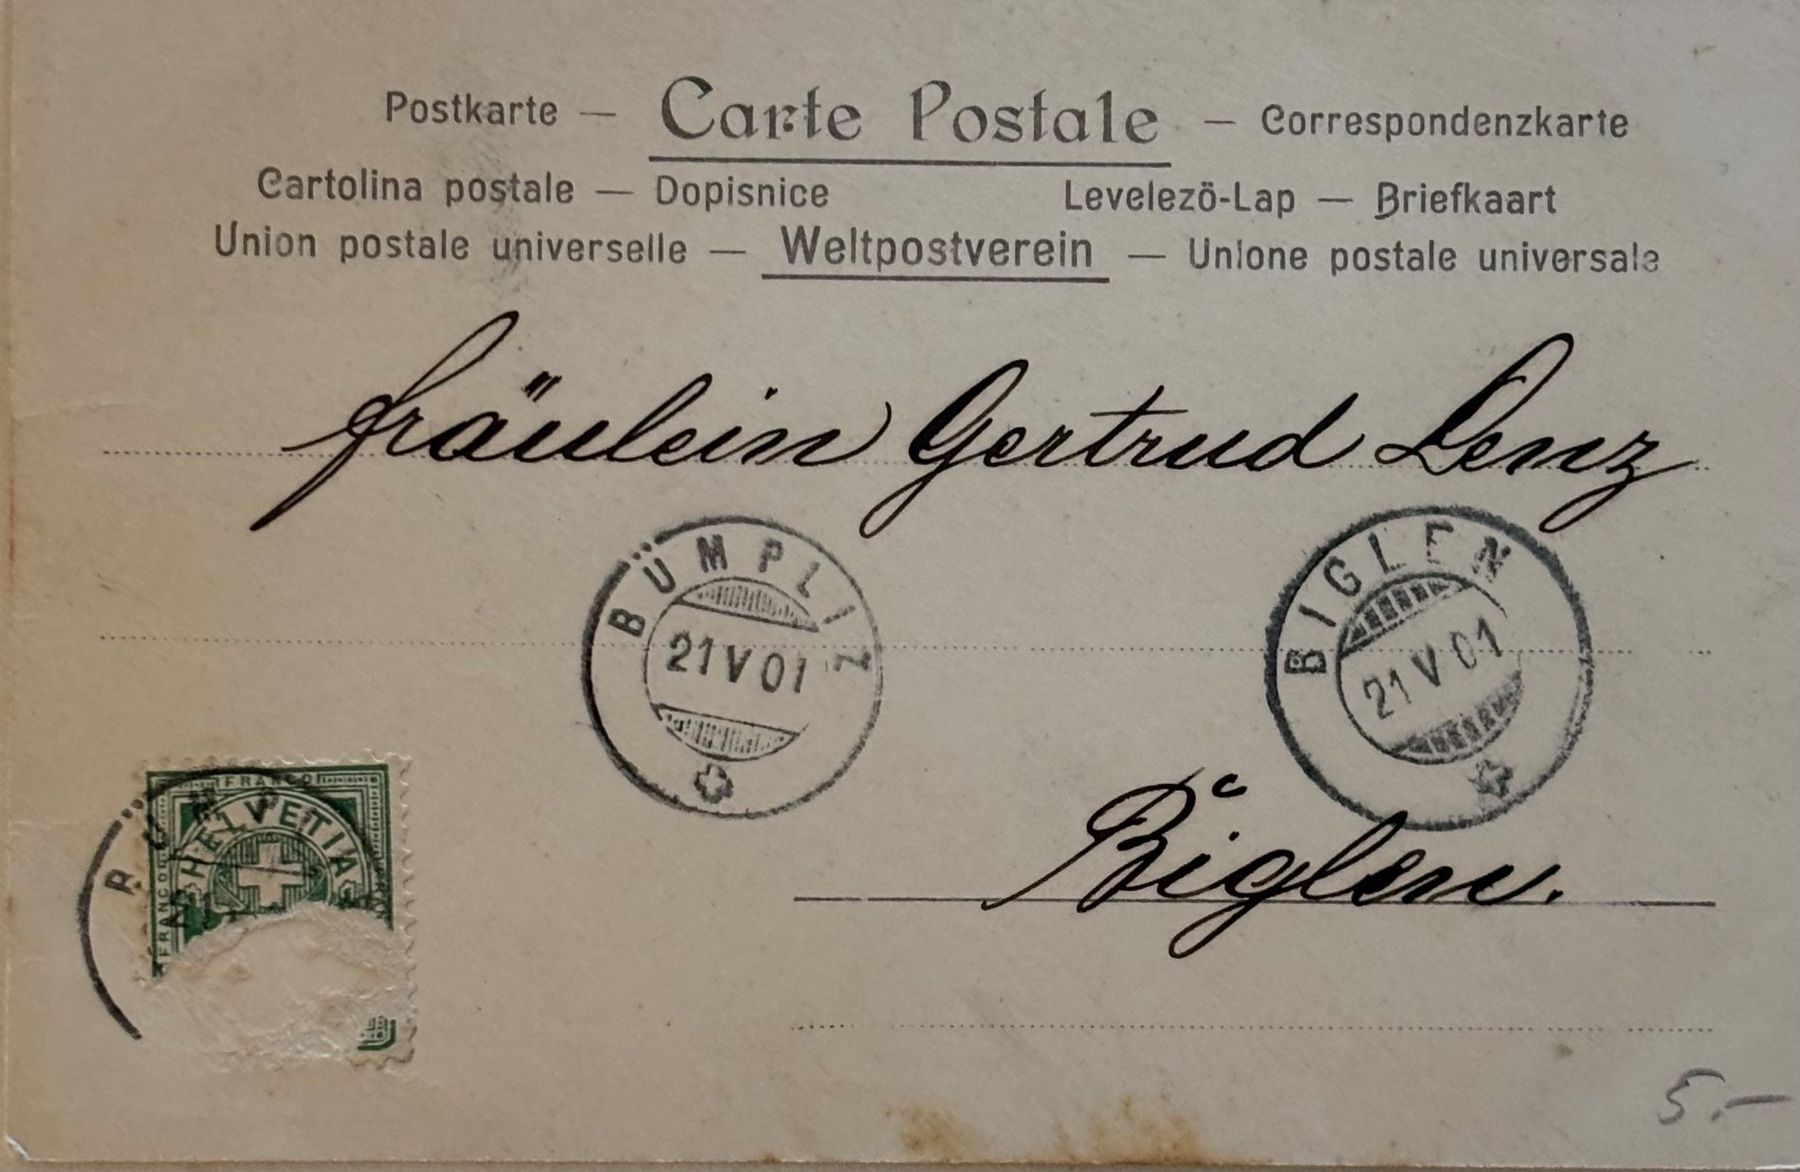 Postkarte — Carte Postale — Correspondenzkarte
Cartolina postale — Dopisnice Levelezö-Lap — Briefkaart
Union postale universelle — Weltpostverein — Unione postale universale
Fräulein Gertrud Lenz
BÜMPLIZ
21 V 01
BIGLEN
21 V 01
Biglen.
FRANCO
HELVETIA
FRANCO
5.—